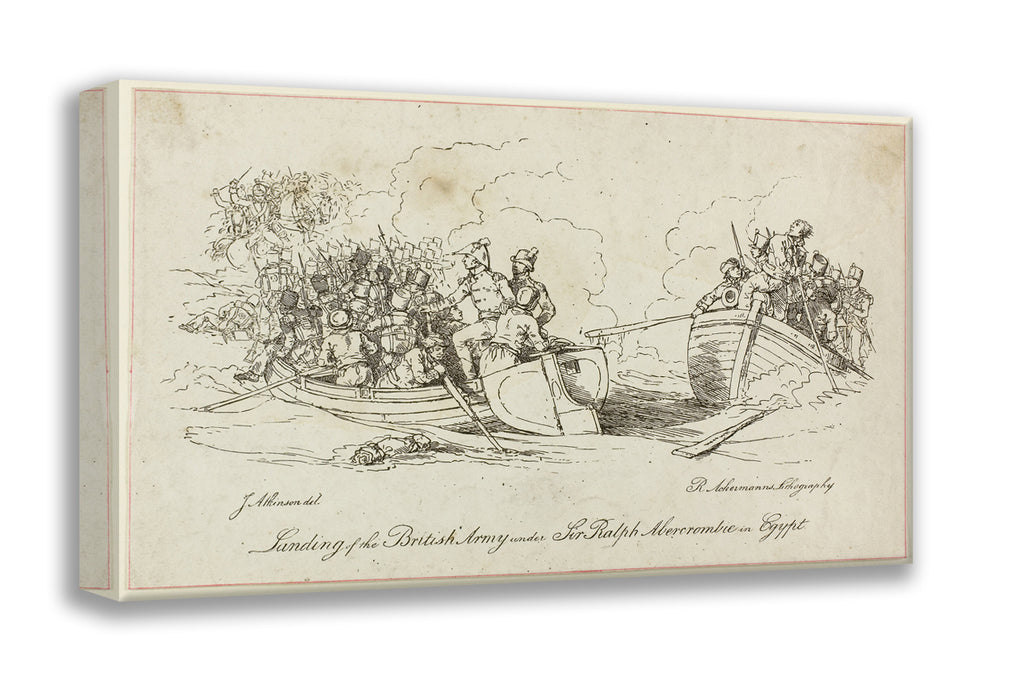 J Atkinson del.
R. Ackermanns Lithography
Landing of the British Army under Sir Ralph Abercrombie in Egypt